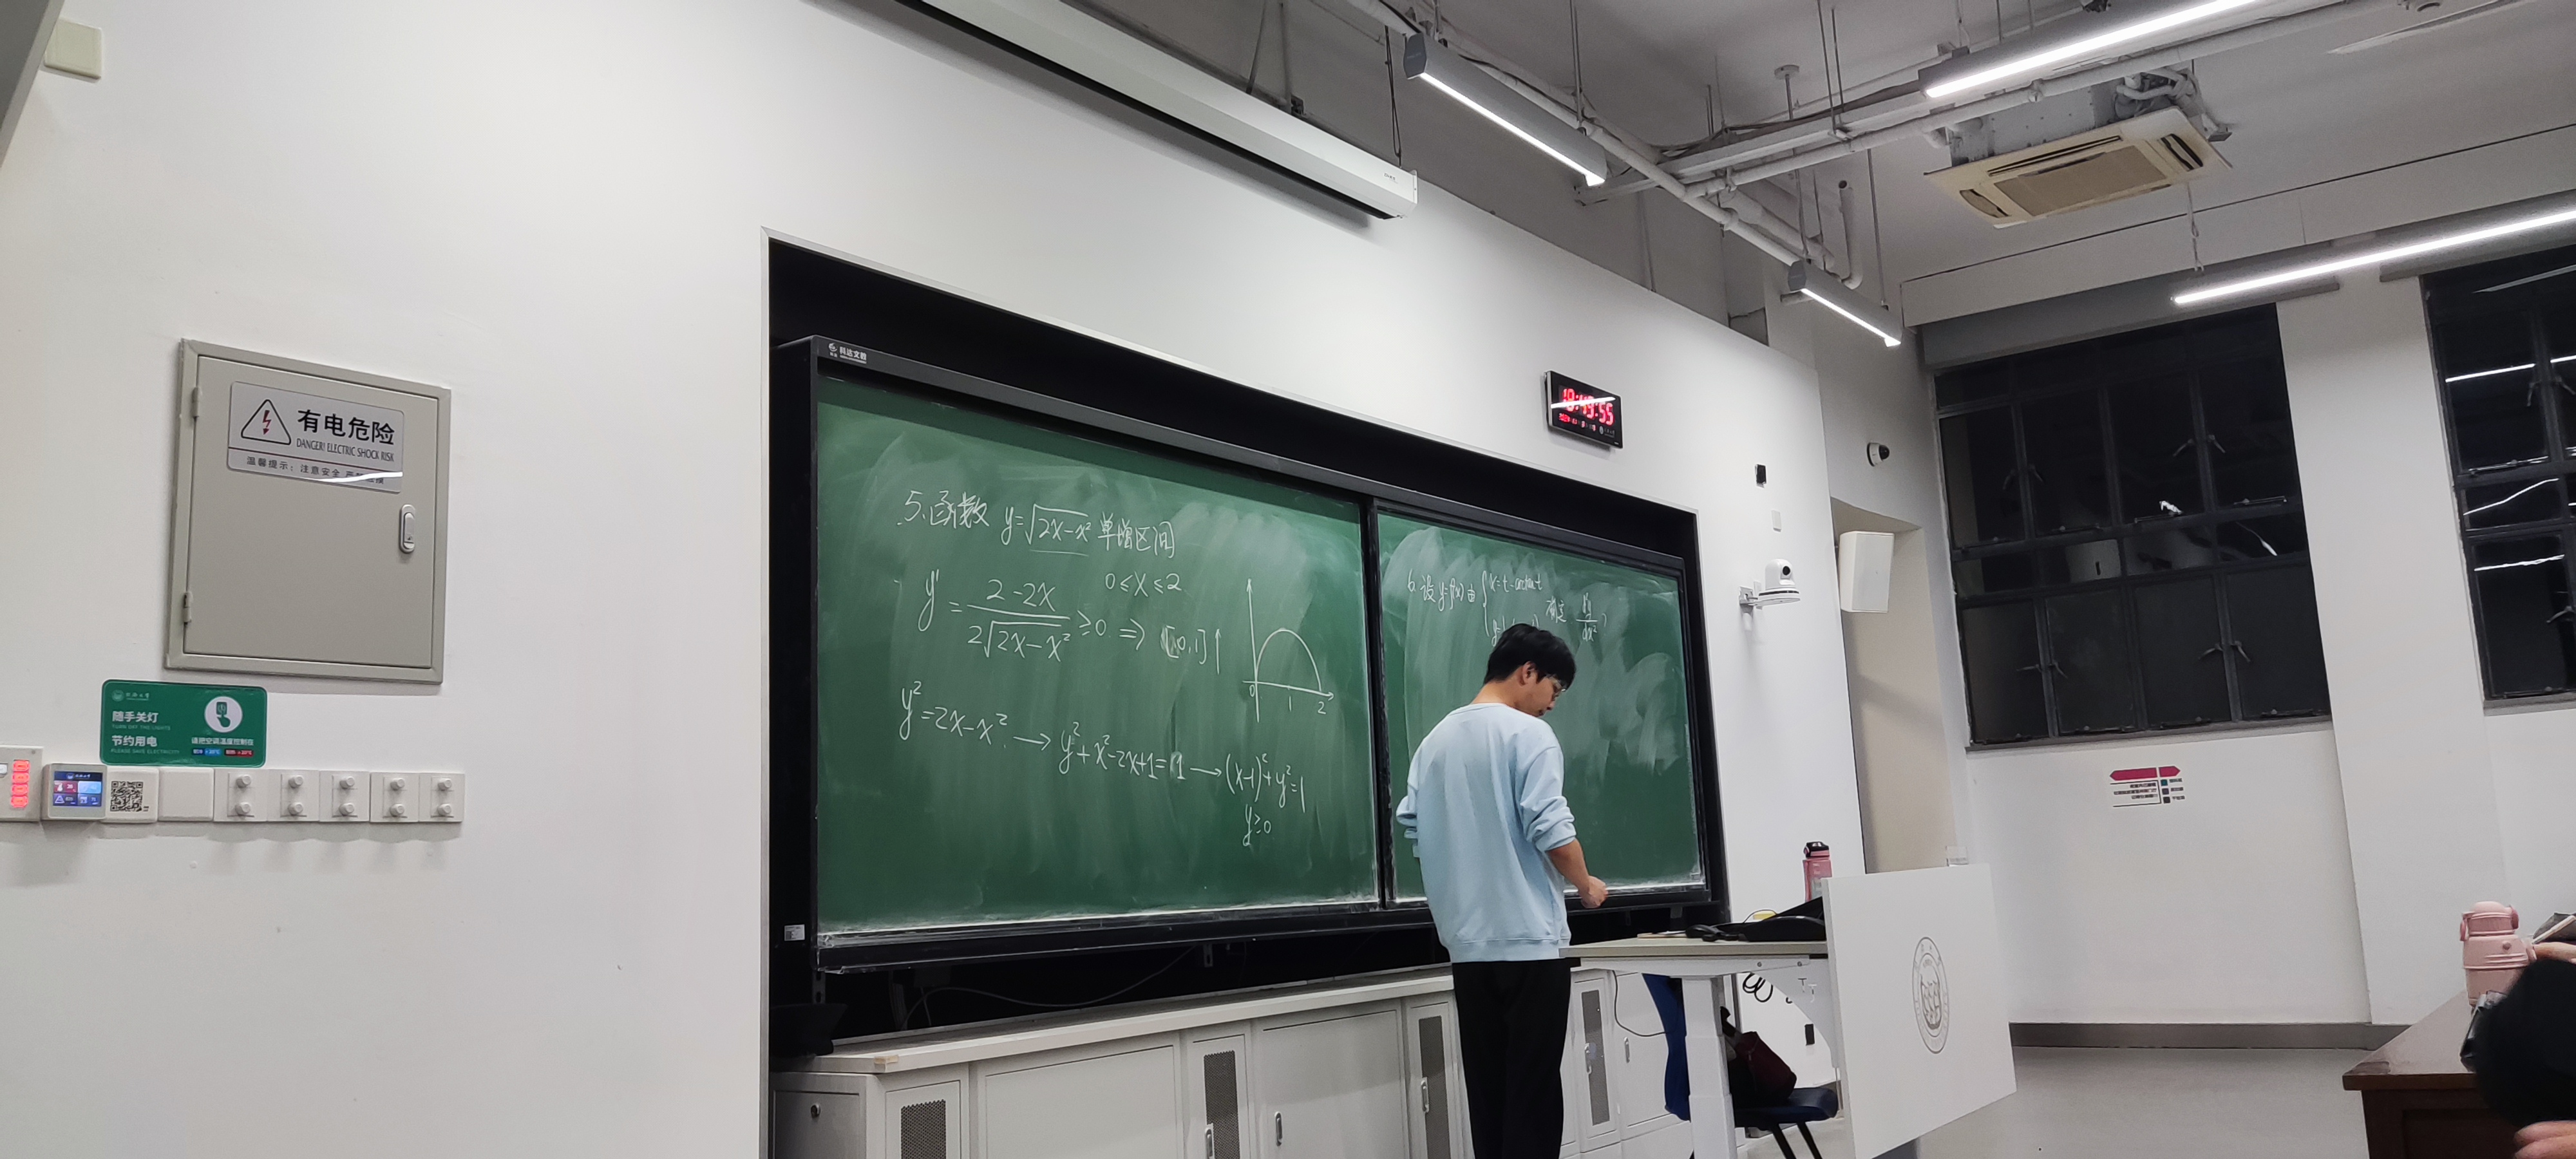 有电危险
DANGER! ELECTRIC SHOCK RISK
温馨提示：注意安全
随手关灯
TURN OFF THE LIGHTS
节约用电
PLEASE SAVE ELECTRICITY
请把空调温度控制在
科达文教
5.函数 y=√(2x-x²) 单增区间
0≤x≤2
y' = (2-2x)/(2√(2x-x²)) ≥0 ⇒ [0,1]↑
0 1 2
y²=2x-x² → y²+x²-2x+1=1 → (x-1)²+y²=1
y≥0
6.设 y=f(x) 由 { x=t-arctant
确定